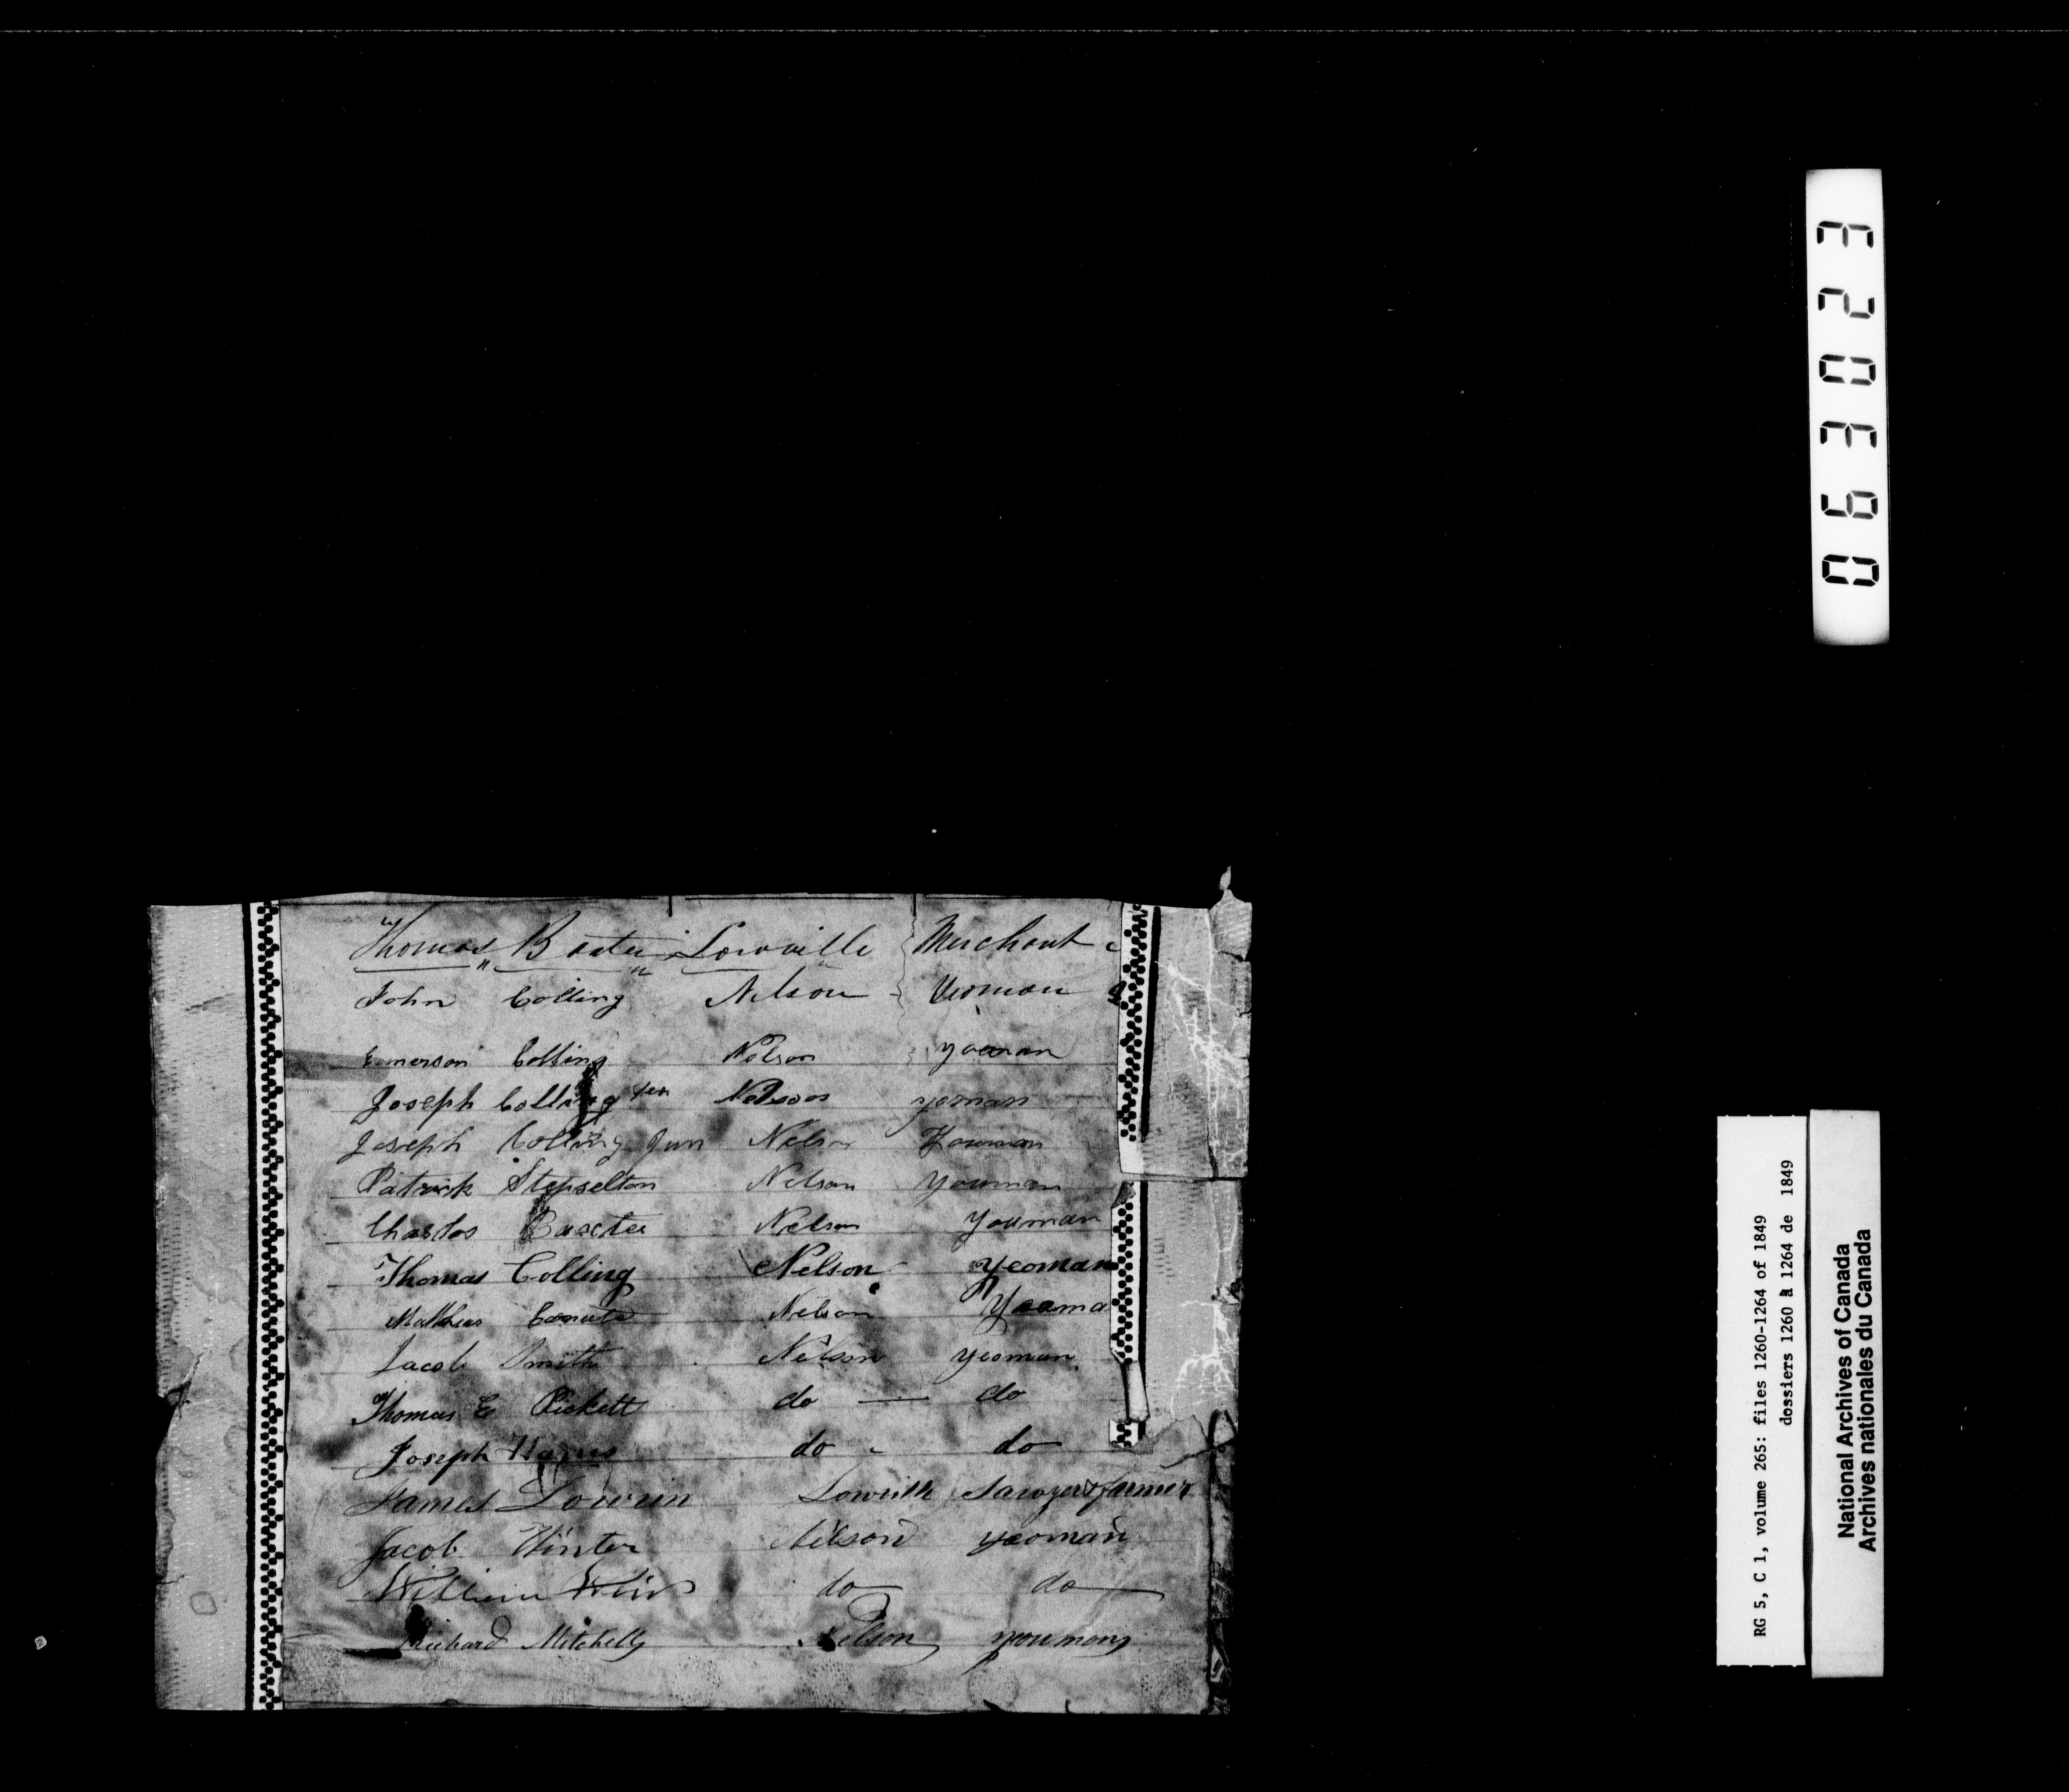 Thomas Baxter Lowville Merchant
John Colling Nelson Yeoman
Emerson Colling Nelson yoeman
Joseph Colling Sen Nelson yoman
Joseph Colling Jun Nelson Youman
Patrick Stepselton Nelson Youman
Charles Baxter Nelson Youman
Thomas Colling Nelson yeoman
Mathias Nelson Yeoma
Jacob Smith Nelson yeoman
Thomas C Pickett do — do
Joseph do - do
James Lowville Sawyer & farmer
Jacob Winter Nelson yeoman
William Weir do do
Richard Mitchell Nelson youman
063023
RG 5, C 1, volume 265: files 1260-1264 of 1849
dossiers 1260 à 1264 de 1849
National Archives of Canada
Archives nationales du Canada